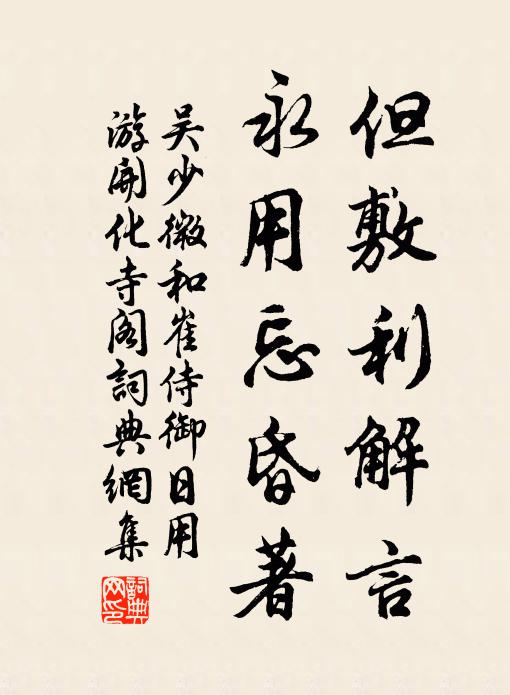 但敷利解言
永用忘昏著
吴少微和崔侍御日用
游开化寺阁詞典網集
詞典網印